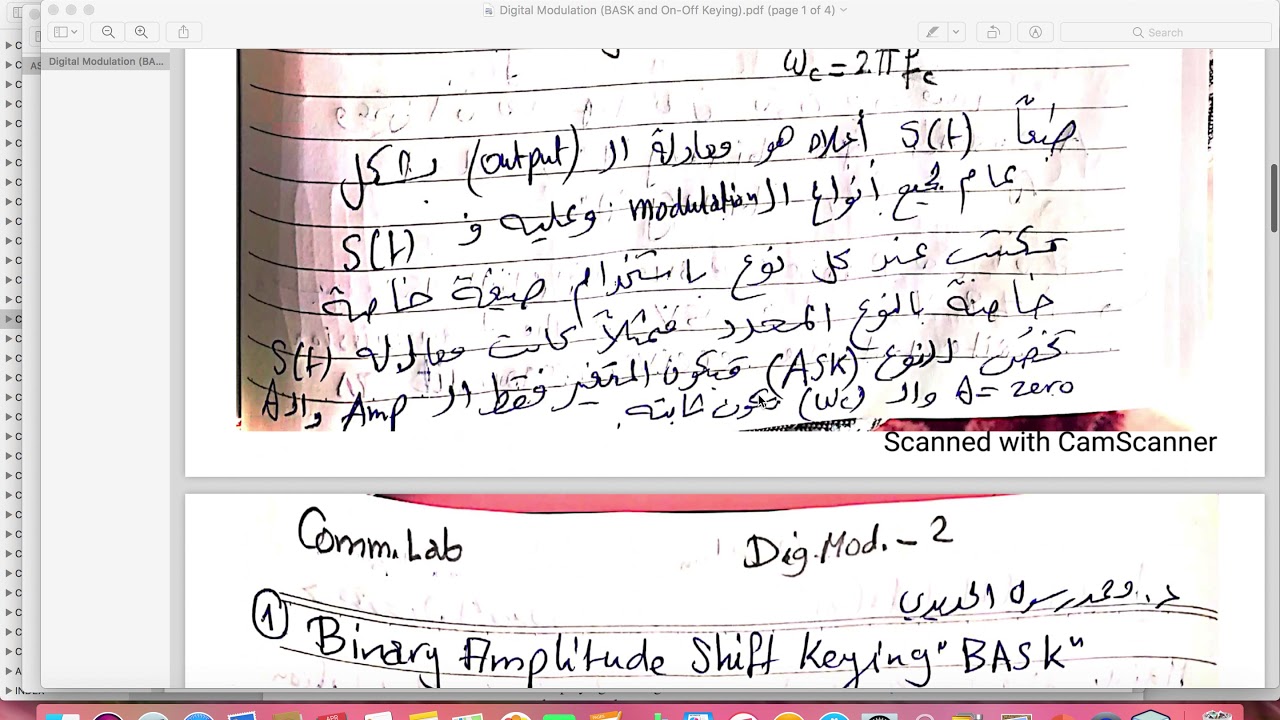 Digital Modulation (BASK and On-Off Keying).pdf (page 1 of 4)
Search
Digital Modulation (BA...
ωc = 2πfc
S(t) أعلاه هو معادلة الـ (output) بشكل
عام لجميع أنواع الـ modulation وعليه فـ S(t)
تكتب عند كل نوع باستخدام صيغة خاصة
خاصة بالنوع المحدد فمثلاً كانت معادلة S(t)
تخص النوع (ASK) فيكون المتغير فقط الـ Amp والـ θ
θ = zero والـ (ωc) تكون ثابته.
Scanned with CamScanner
Comm. Lab
Dig. Mod. - 2
د.
① Binary Amplitude Shift Keying "BASK"